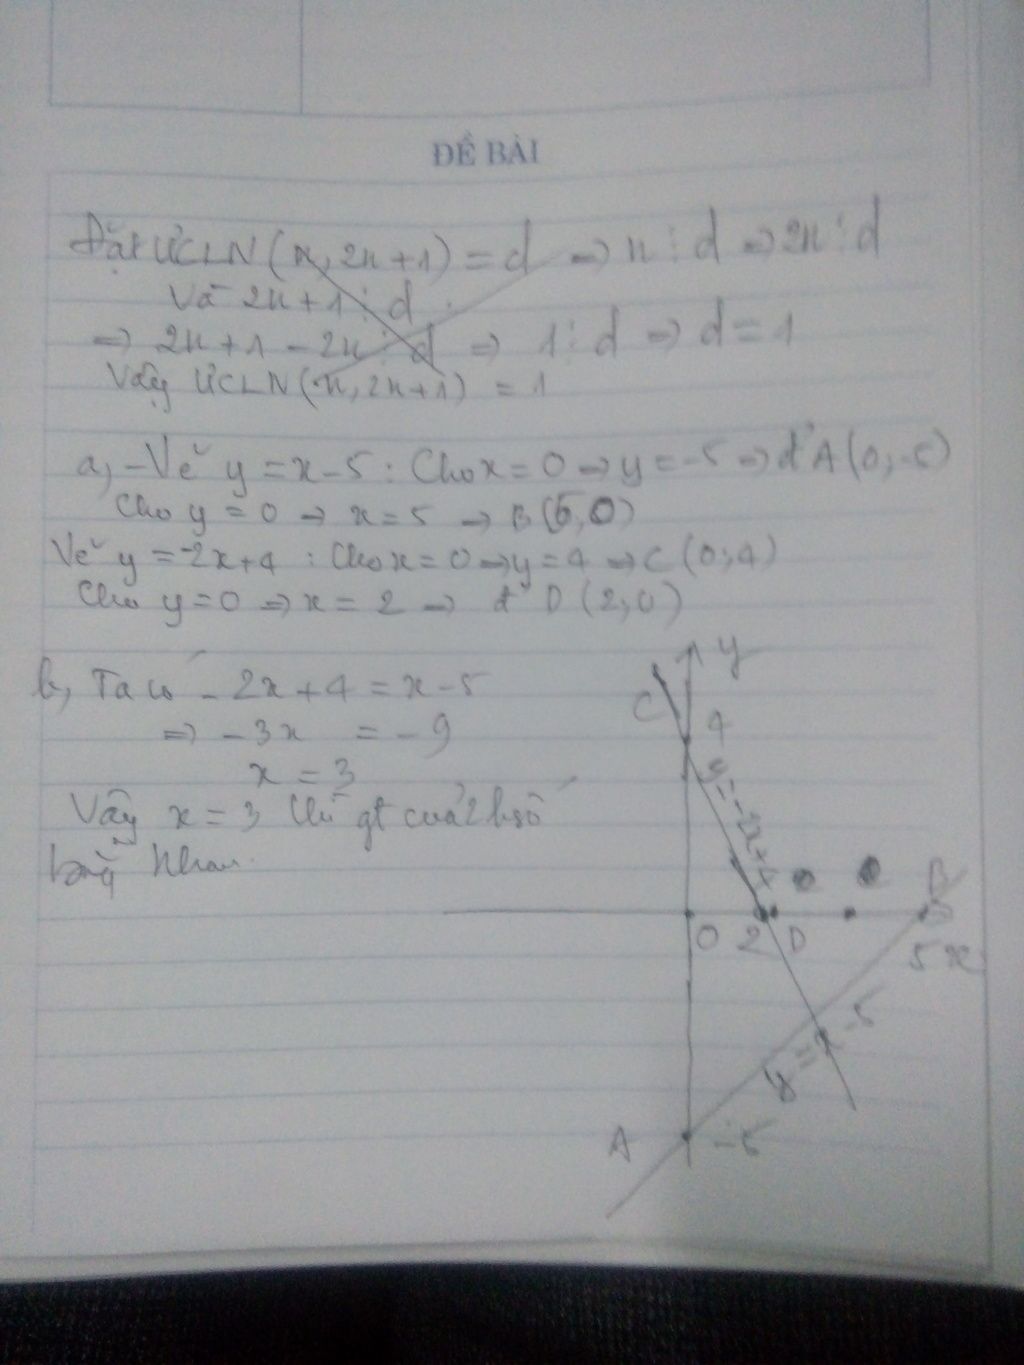 ĐỀ BÀI
Đặt ƯCLN (n, 2n+1) = d => n ⋮ d => 2n ⋮ d
Và 2n + 1 ⋮ d
=> 2n + 1 - 2n ⋮ d => 1 ⋮ d => d = 1
Vậy ƯCLN (n, 2n+1) = 1
a, - Vẽ y = x - 5 : Cho x = 0 => y = -5 => đ' A (0, -5)
Cho y = 0 => x = 5 => B (5, 0)
Vẽ y = -2x + 4 : Cho x = 0 => y = 4 => C (0; 4)
Cho y = 0 => x = 2 => đ' D (2, 0)
b, Ta có - 2x + 4 = x - 5
=> - 3x = - 9
x = 3
Vậy x = 3 thì gt của 2 hsố
bằng nhau.
y
C
4
y = -2x + 4
B
O 2 D
5 x
y = x - 5
A
-5